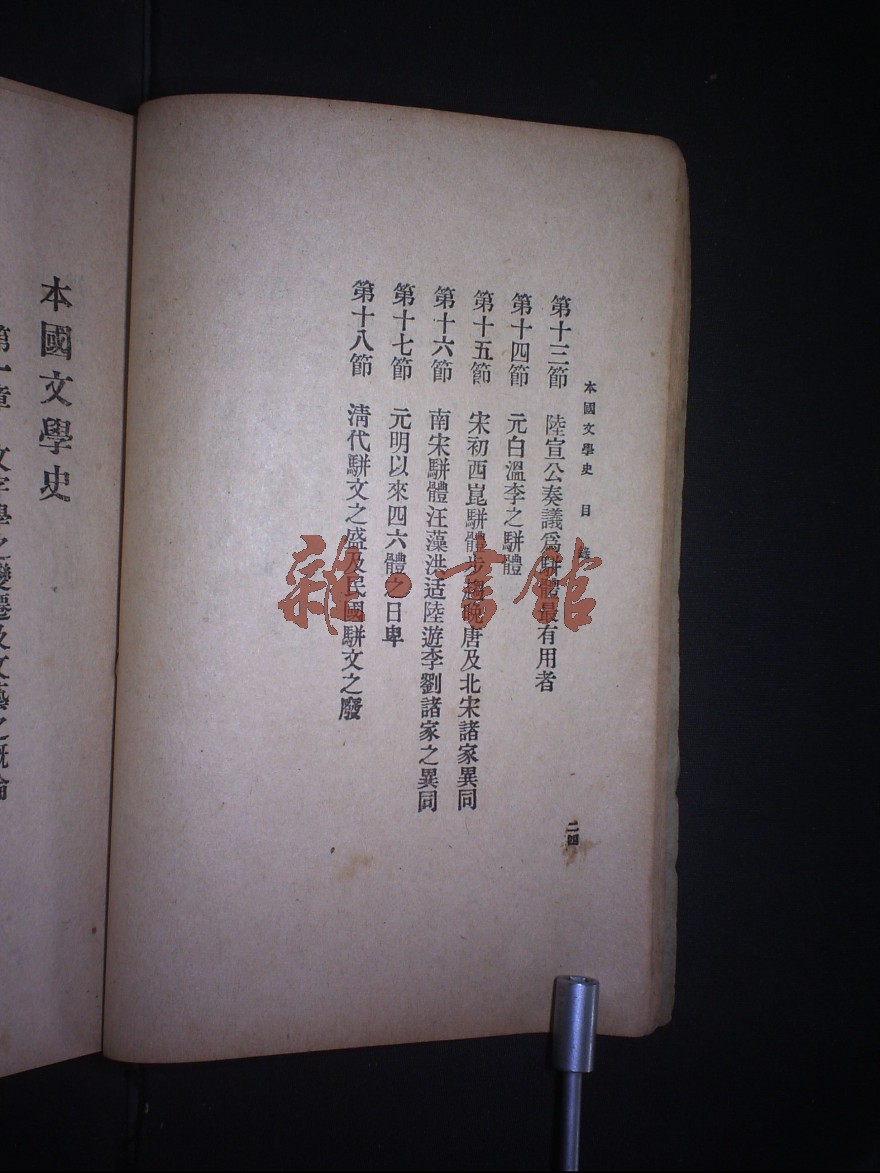 本國文學史 目錄
第十三節 陸宣公奏議爲駢體最有用者
第十四節 元白溫李之駢體
第十五節 宋初西崑駢體步趨晚唐及北宋諸家異同
第十六節 南宋駢體汪藻洪适陸游李劉諸家之異同
第十七節 元明以來四六體之日卑
第十八節 淸代駢文之盛及民國駢文之廢
二四
本國文學史
第一章 文字學之變遷及文藝之槪論
雜·書館